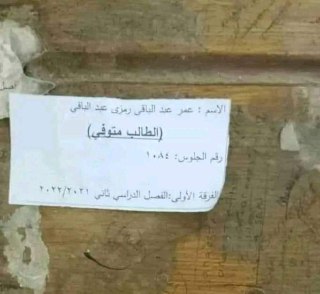 الاسم : عمر عبد الباقى رمزى عبد الباقي
(الطالب متوفي)
رقم الجلوس: ١٠٨٤
الفرقة الأولى:الفصل الدراسي ثاني ٢٠٢٢/٢٠٢١